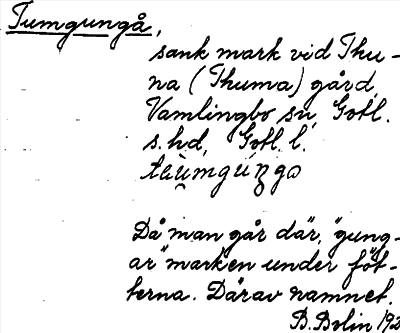 Tumgungå,
sank mark vid Thu-
na (Thuma) gård,
Vamlingbo sn, Gotl.
s. hd, Gotl. l.
Då man går där, "gung-
ar" marken under föt-
terna. Därav namnet.
B. Bolin